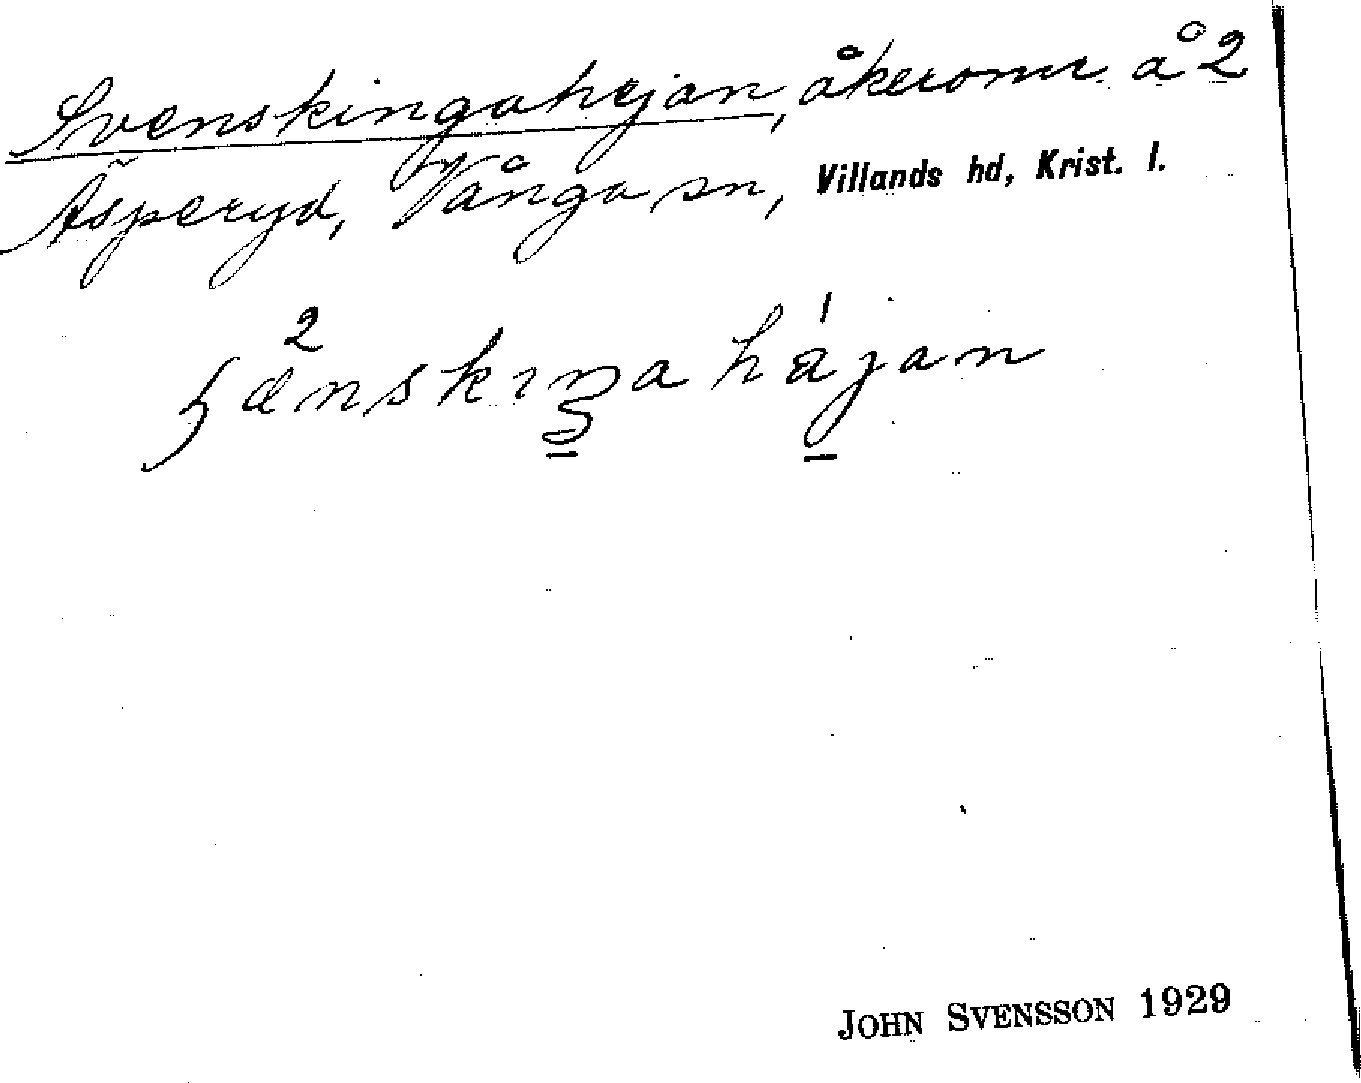 Svenskingahejan, åkeromr. å 2
Äsperyd, Vånga sn, Villands hd, Krist. l.
JOHN SVENSSON 1929